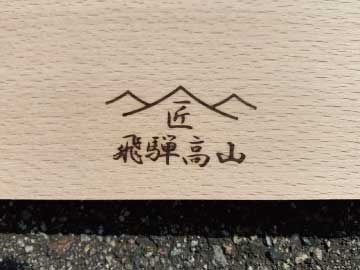 匠
飛騨高山